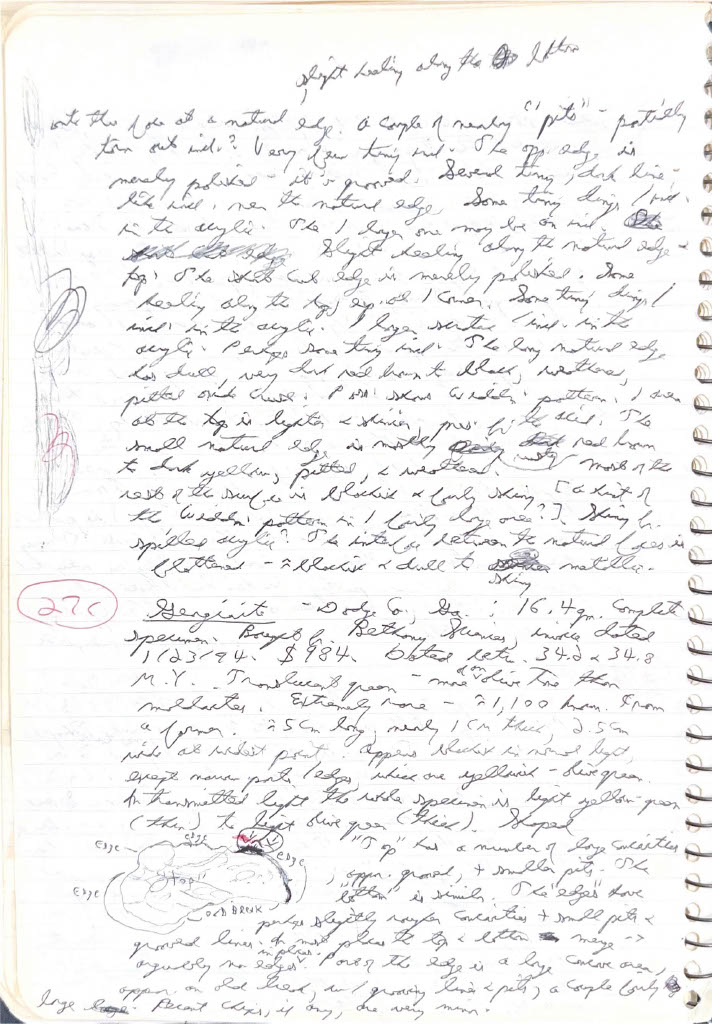 slight healing along the bottom
onto the face at a natural edge. A couple of nearby "pits" - partially
torn out incl.? Very few tiny incl. The opp. edge is
merely polished - it's grooved. Several tiny, dark line-
like incl. near the natural edge. Some tiny dings / incl.
in the acrylic. The 1 larger one may be an incl.
Slight healing along the natural edge &
top. The short cut edge is merely polished. Some
healing along the top, esp. at 1 corner. Some tiny dings /
incl. in the acrylic. 1 larger incl. in the
acrylic. Perhaps some tiny incl. The long natural edge
has dull, very dark red brown to black, weathered,
pitted oxide crust. Poss. shows Widdm. pattern. 1 area
at the top is lighter & shinier, pres. fr. the acid. The
small natural edge is mostly red brown
to dark yellow, pitted, & weathered. most of the
rest of the surface is blackish & fairly shiny. [A hint of
the Widdm. pattern in 1 fairly large one?]. Shiny fr.
spilled acrylic? The interface between the natural faces is
flattened - ≈ blackish & dull to shiny metallic.
27c
Georgiaite - Dodge Co., Ga.: 16.4 gm. Complete
specimen. Bought fr. Bethany Sciences, invoice dated
1/23/94. $984. Dated betw. 34.2 & 34.8
M.Y. Translucent green - more of an olive tone than
moldavites. Extremely rare - ≈1,100 known. From
a farmer. ≈5cm long, nearly 1cm thick, 2.5cm
wide at widest point. Appears blackish in normal light,
except narrow parts / edges, which are yellowish-olive green.
In transmitted light the whole specimen is light yellow-green
(thin) to light olive green (thick). Shaped
EDGE
EDGE
EDGE
EDGE
"top"
OLD BREAK
"Top" has a number of large concavities
, appar. grooved, + smaller pits. The
"bottom" is similar. The "edges" have
perhaps slightly rougher concavities + small pits &
grooved lines. In most places the top & bottom merge ->
arguably no edges in places. Part of the edge is a large concave area,
appar. an old break, w/ grooving lines & pits, a couple fairly
large. Recent chips, if any, are very minor.